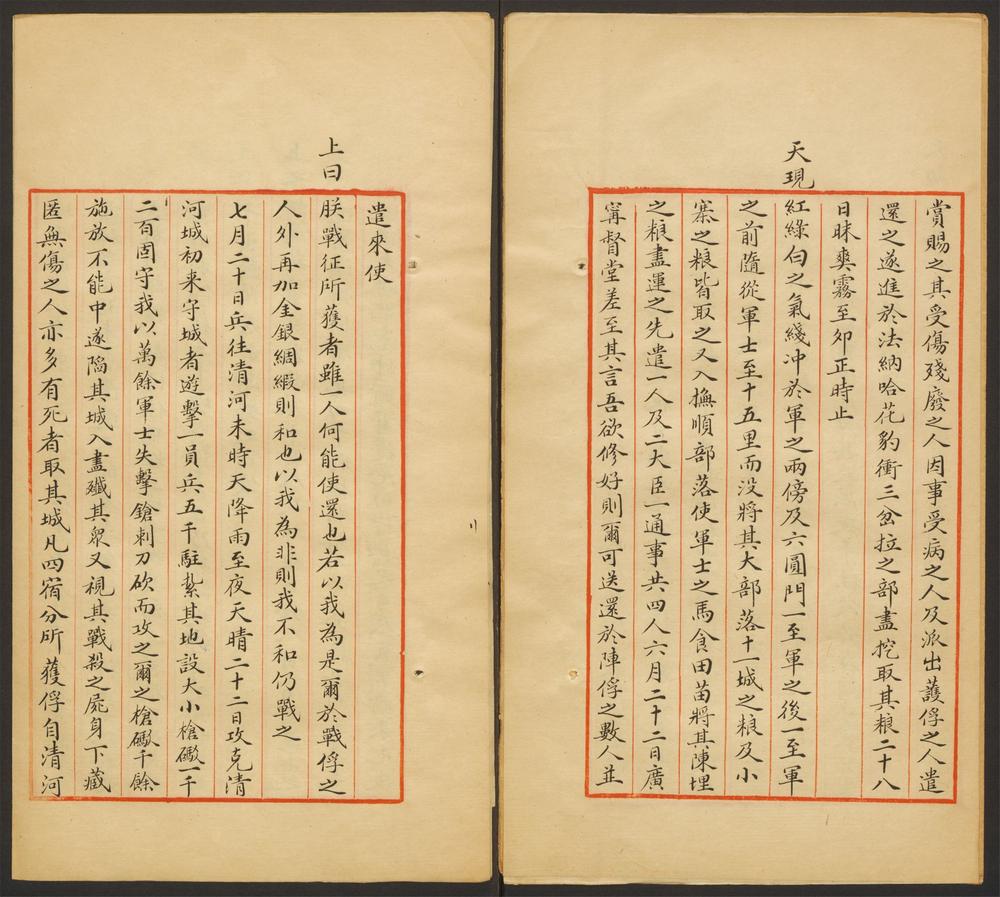 賞賜之其受傷殘廢之人因事受病之人及派出護俘之人遣
還之遂進於法納哈花豹衝三岔拉之部盡挖取其粮二十八
日昧爽霧至卯正時止
天現
紅綠白之氣綫冲於軍之兩傍及六圓門一至軍之後一至軍
之前隨從軍士至十五里而没將其大部落十一城之粮及小
寨之粮皆取之又入撫順部落使軍士之馬食田苗將其陳埋
之粮盡運之先遣一人及二大臣一通事共四人六月二十二日廣
甯督堂差至其言吾欲修好則爾可送還於陣俘之數人並
遣來使
上曰
朕戰征所獲者雖一人何能使還也若以我為是爾於戰俘之
人外再加金銀綢緞則和也以我為非則我不和仍戰之
七月二十日兵往清河未時天降雨至夜天晴二十二日攻克清
河城初来守城者遊擊一員兵五千駐紮其地設大小槍礮一千
二百固守我以萬餘軍士失擊鎗刺刀砍而攻之爾之槍礮千餘
施放不能中遂陷其城入盡殲其衆又視其戰殺之屍身下藏
匿無傷之人亦多有死者取其城凡四宿分所獲俘自清河